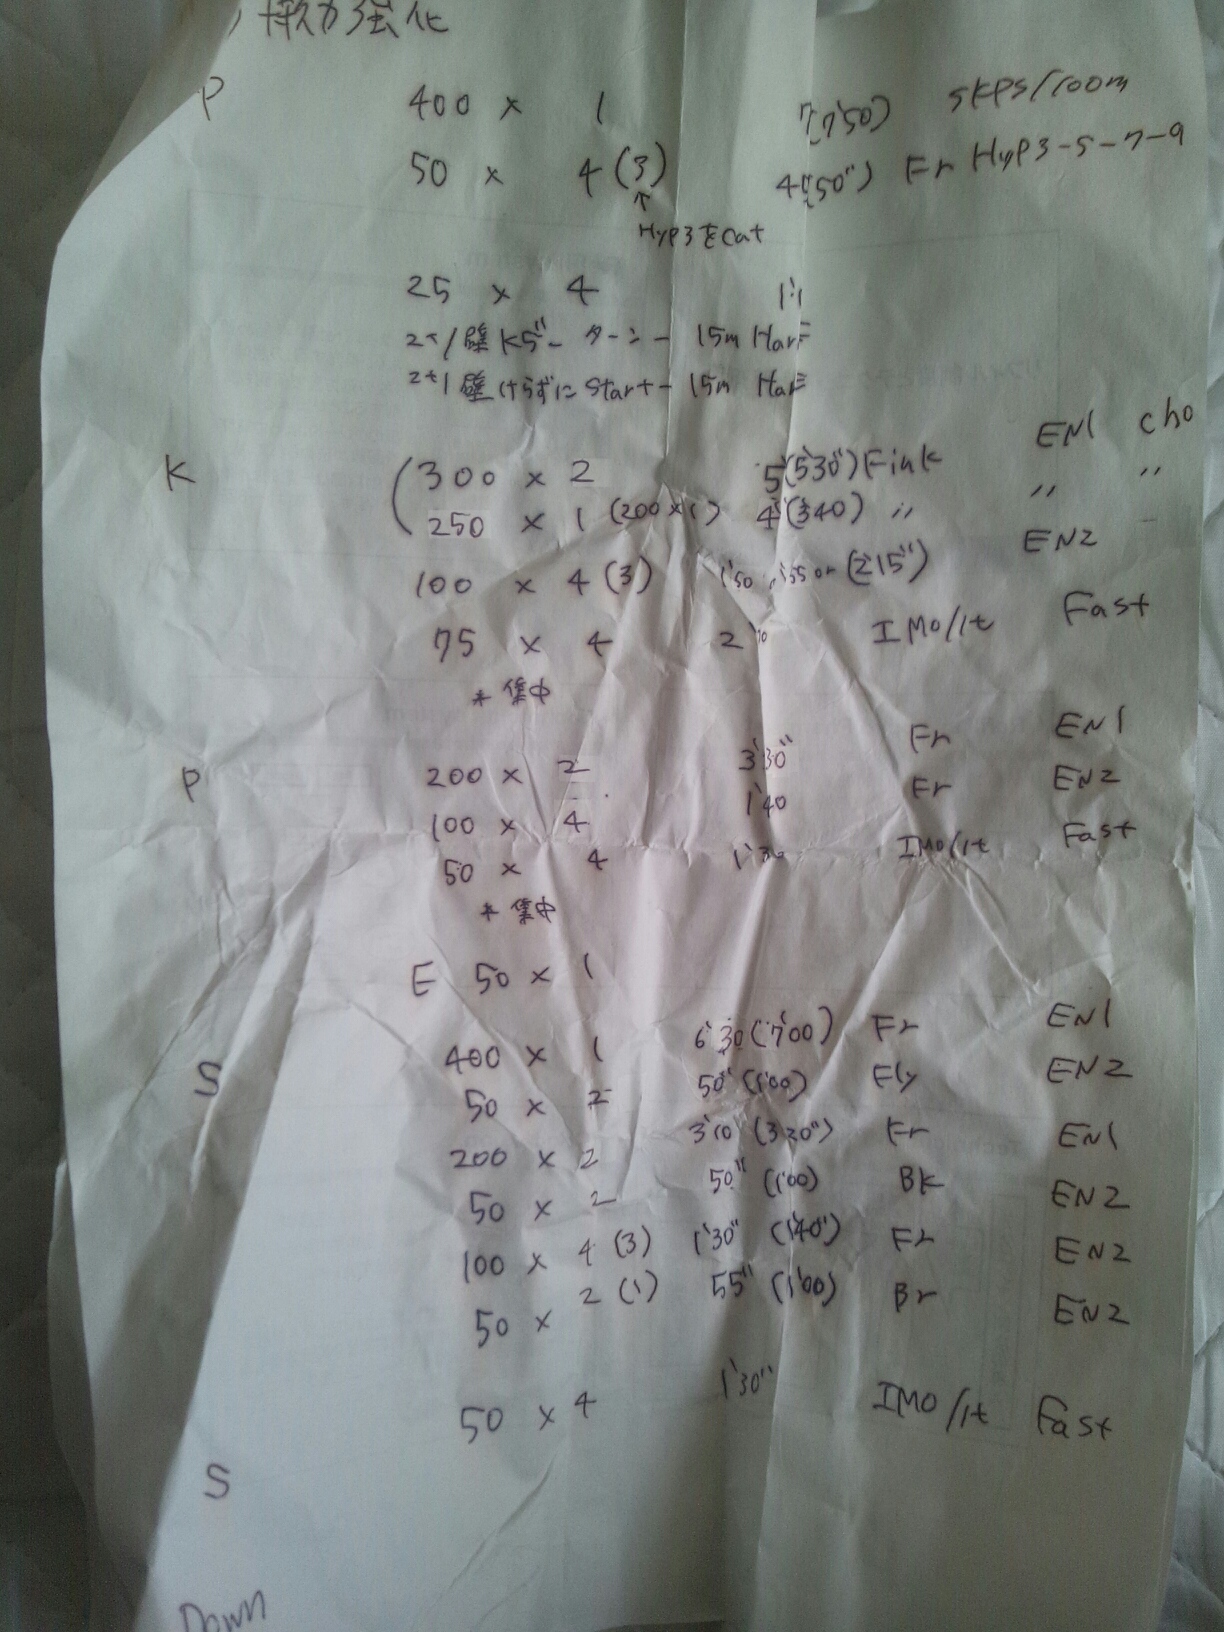 力強化
P 400 × 1 7'(7'50) SKPS/100m
50 × 4 (3) (50") Fr Hyp3-5-7-9
↑
Hyp3をCat
25 × 4 1'
ターン - 15m Hard
壁けらずに Start - 15m Hard
K (300 × 2 5'(5'30") Fink EN1 cho
250 × 1 (200×1) 4'(3'40) 〃 〃 〃
100 × 4 (3) 1'50 1'55 or (2'15") EN2
75 × 4 2' IMO/1t Fast
* 集中
P 200 × 2 3'30" Fr EN1
100 × 4 1'40 Fr EN2
50 × 4 1'30 IMO/1t Fast
* 集中
E 50 × 1
S 400 × 1 6'30 (7'00) Fr EN1
50 × 2 50" (1'00) Fly EN2
200 × 2 3'10 (3'20") Fr EN1
50 × 2 50" (1'00) Bk EN2
100 × 4 (3) 1'30" (1'40") Fr EN2
50 × 2 (1) 55" (1'00) Br EN2
50 × 4 1'30" IMO/1t Fast
S
Down